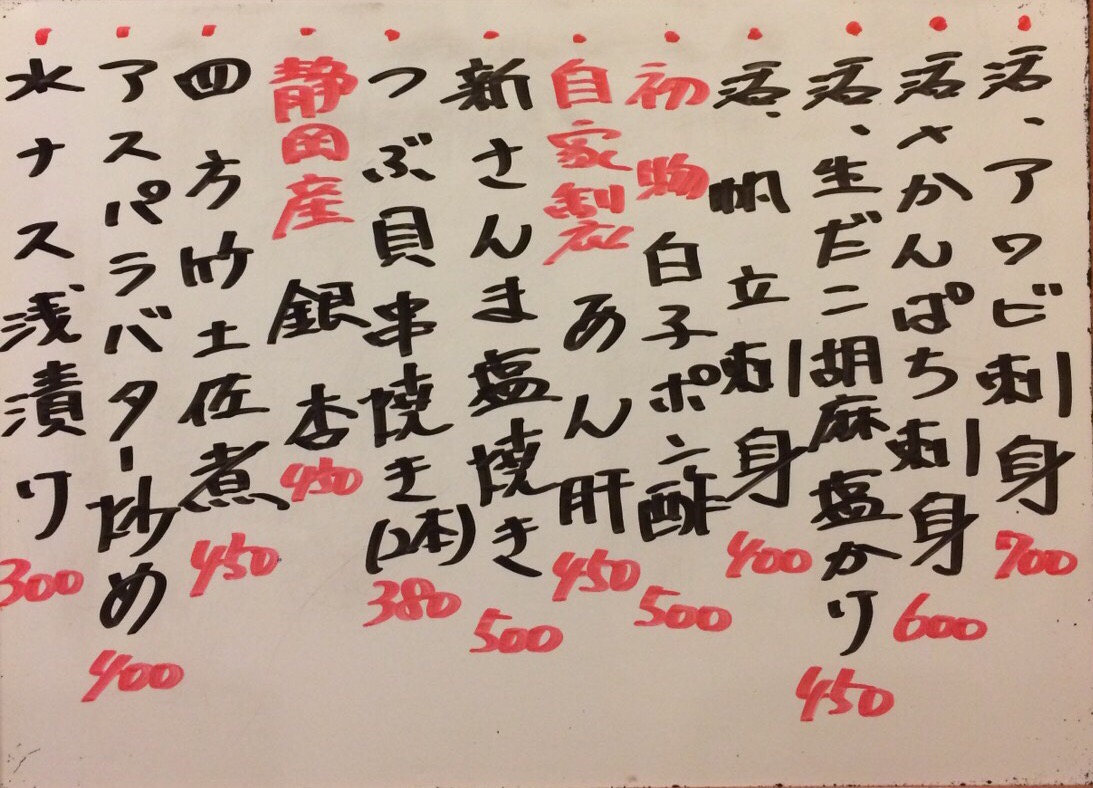 活、アワビ刺身 700
活、かんぱち刺身 600
活、生だこ胡麻塩かり 450
活、帆立刺身 400
初物 白子ポン酢 500
自家製 あん肝 450
新さんま塩焼き 500
つぶ貝串焼き(2本) 380
静岡産 銀杏 450
四方竹土佐煮 450
アスパラバター炒め 400
水ナス浅漬り 300